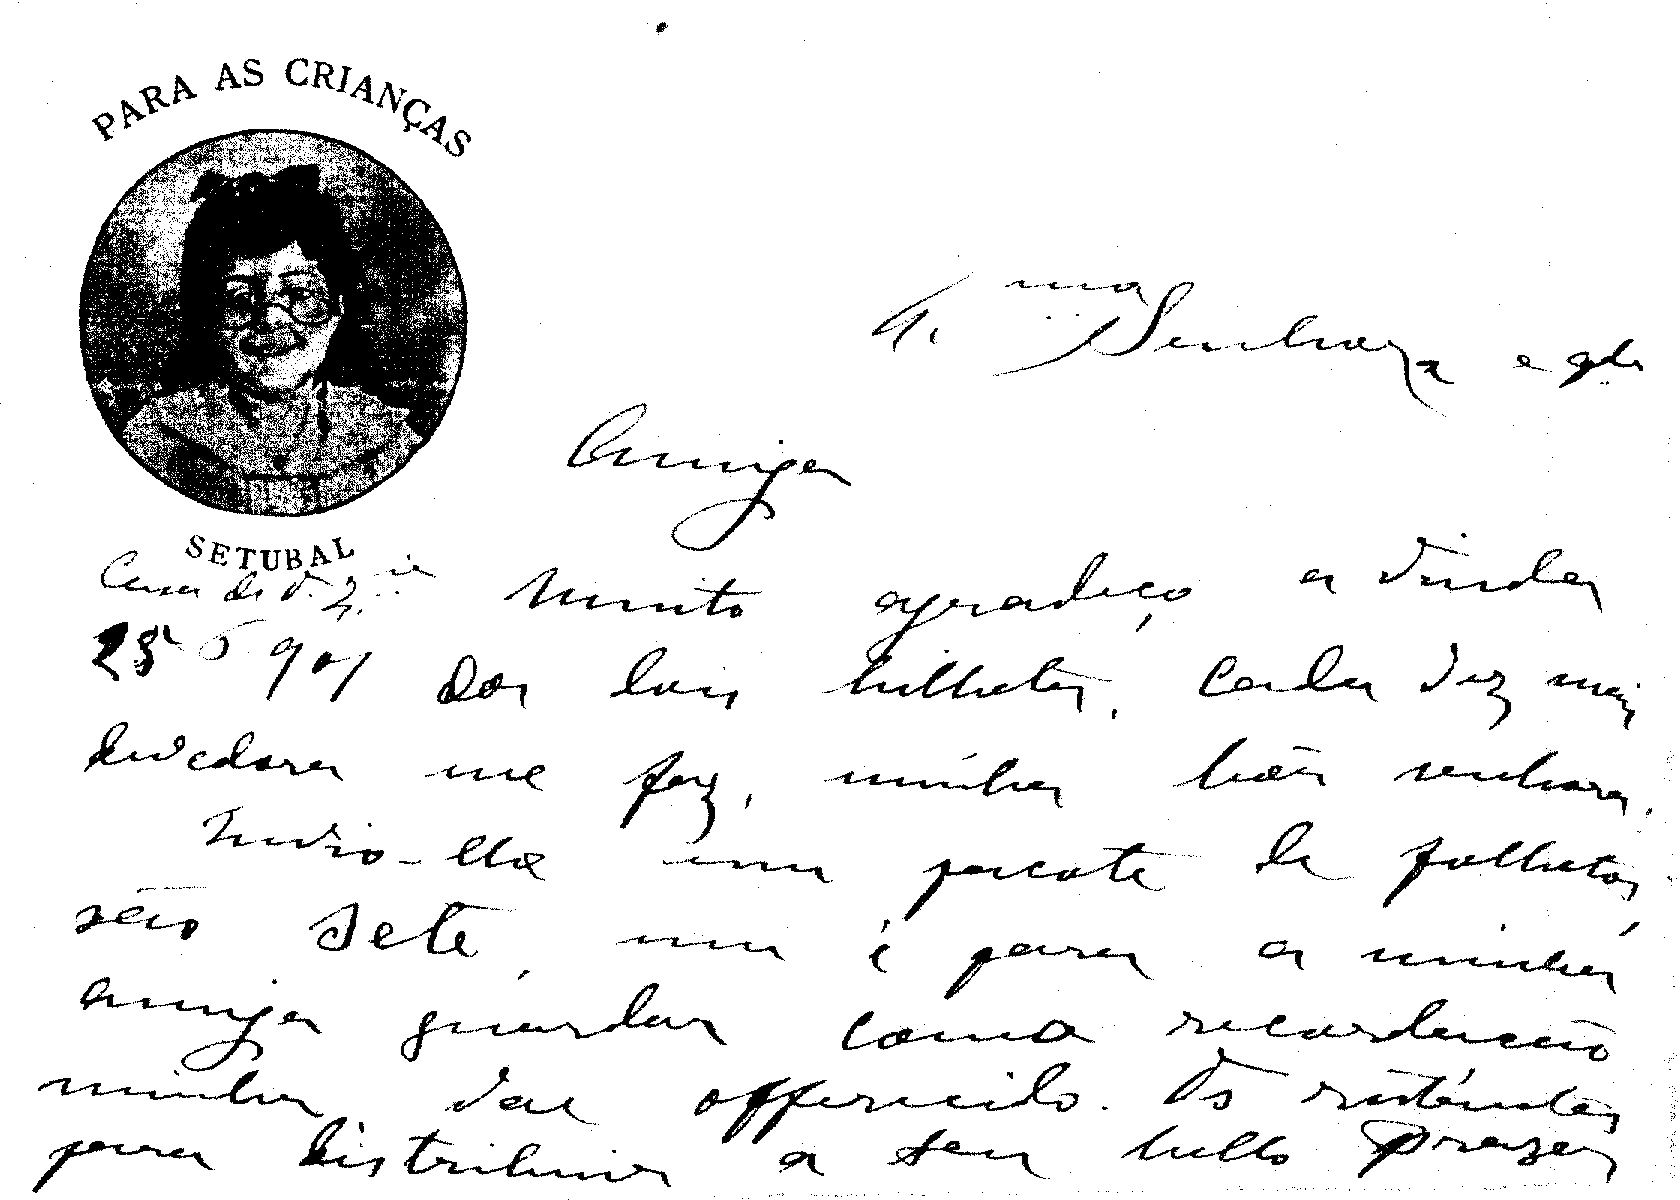 PARA AS CRIANÇAS
SETUBAL
Ex.ma Senhora e
Amiga
Casa de V. Ex.cia
25 6 901
Muito agradeço a vinda
dos dois bilhetes, cada vez mais
devedora me faz, minha bôa senhora.
Envio-lhe um pacote de folhetos,
são sete, um é para a minha
amiga guardar como recordação
minha vae offerecido. Os restantes
para distribuir a seu bello prazer